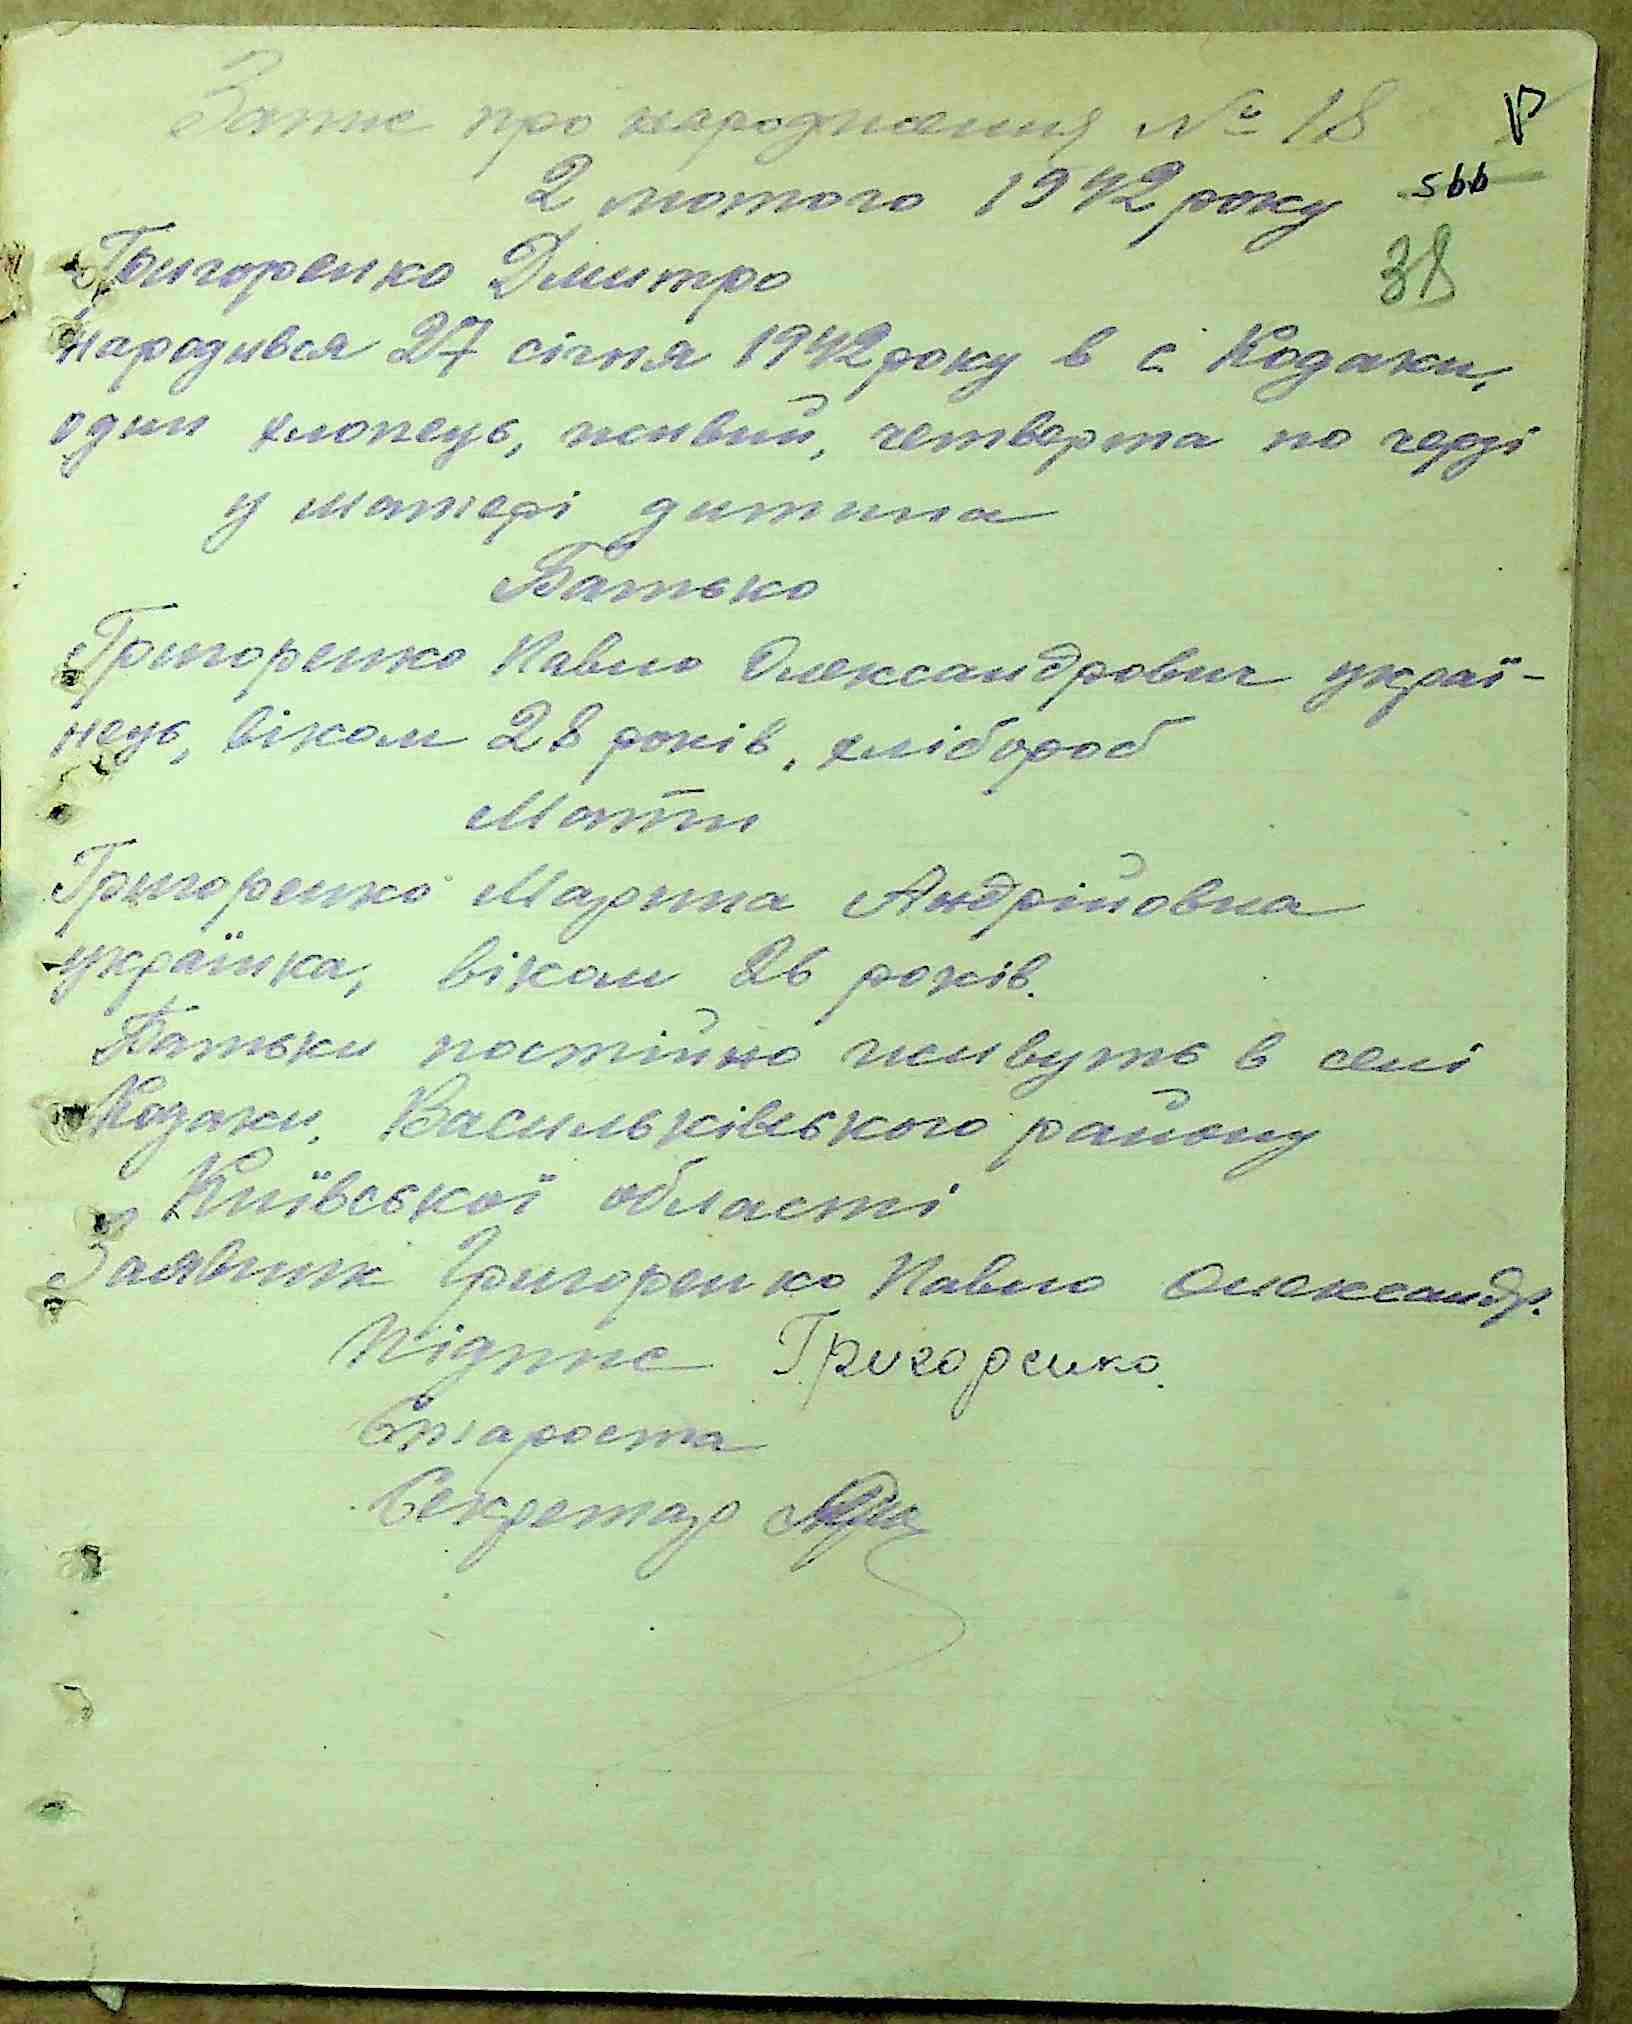 Запис про народження № 18
2 лютого 1942 року
566
38
Григоренко Дмитро
народився 27 січня 1942 року в с. Кодаки,
один хлопець, живий, четверта по черзі
у матері дитина
Батько
Григоренко Павло Олександрович украї-
нець, віком 28 років, хлібороб
Мати
Григоренко Марина Андрійовна
українка, віком 26 років.
Батьки постійно живуть в селі
Кодаки, Васильківського району
Київської області
Заявник Григоренко Павло Олександр.
Підпис Григоренко.
Староста
Секретар